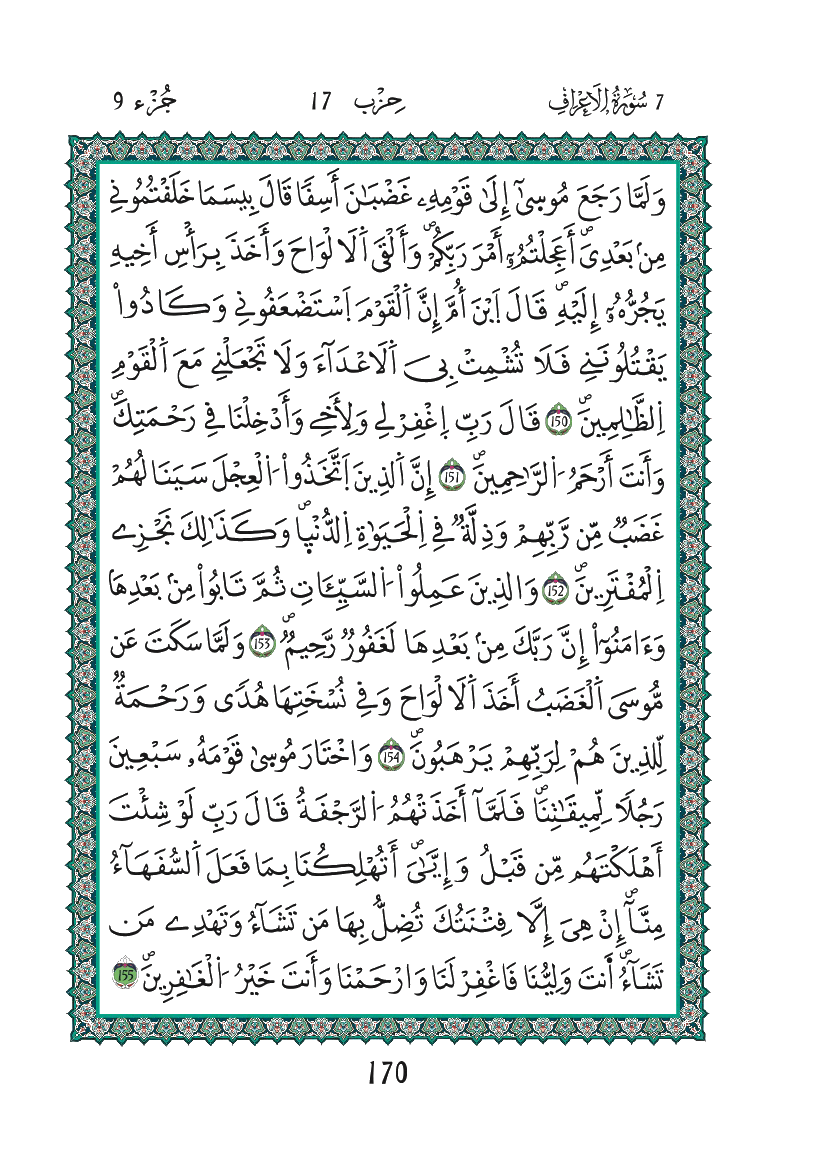 7 سُورَةُ الْأَعْرَافِ حِزْب 17 جُزْء 9
وَلَمَّا رَجَعَ مُوسِىٰٓ إِلَىٰ قَوْمِهِۦ غَضْبَٰنَ أَسِفًا قَالَ بِيسَمَا خَلَفْتُمُونِے
مِنۢ بَعْدِىَۖ أَعَجِلْتُمُۥٓ أَمْرَ رَبِّكُمْۖ وَأَلْقَى اَلَالْوَاحَ وَأَخَذَ بِرَأْسِ أَخِيهِ
يَجُرُّهُۥٓ إِلَيْهِۖ قَالَ اَبْنَ أُمَّ إِنَّ اَلْقَوْمَ اَسْتَضْعَفُونِے وَكَادُواْ
يَقْتُلُونَنِے فَلَا تُشْمِتْ بِىَ اَلَاعْدَآءَ وَلَا تَجْعَلْنِے مَعَ اَلْقَوْمِ
اِلظَّٰلِمِينَۖ 150 قَالَ رَبِّ اِغْفِرْ لِے وَلِأَخِے وَأَدْخِلْنَا فِے رَحْمَتِكَۖ
وَأَنتَ أَرْحَمُ اُلرَّٰحِمِينَۖ 151 إِنَّ اَلذِينَ اَتَّخَذُواْ اُلْعِجْلَ سَيَنَالُهُمْ
غَضَبٌ مِّن رَّبِّهِمْ وَذِلَّةٌ فِے اِلْحَيَوٰةِ اِلدُّنْيٰاۖ وَكَذَٰلِكَ نَجْزِے
اِلْمُفْتَرِينَۖ 152 وَالذِينَ عَمِلُواْ اُلسَّيِّـَٔاتِ ثُمَّ تَابُواْ مِنۢ بَعْدِهَا
وَءَامَنُوٓاْ إِنَّ رَبَّكَ مِنۢ بَعْدِهَا لَغَفُورٌ رَّحِيمٌۖ 153 وَلَمَّا سَكَتَ عَن
مُّوسَى اَلْغَضَبُ أَخَذَ اَلَالْوَاحَ وَفِے نُسْخَتِهَا هُدًى وَرَحْمَةٌ
لِّلذِينَ هُمْ لِرَبِّهِمْ يَرْهَبُونَۖ 154 وَاخْتَارَ مُوسِىٰ قَوْمَهُۥ سَبْعِينَ
رَجُلًا لِّمِيقَٰتِنَاۖ فَلَمَّآ أَخَذَتْهُمُ اُلرَّجْفَةُ قَالَ رَبِّ لَوْ شِئْتَ
أَهْلَكْتَهُم مِّن قَبْلُ وَإِيَّٰىَۖ أَتُهْلِكُنَا بِمَا فَعَلَ اَلسُّفَهَآءُ
مِنَّآۖ إِنْ هِىَ إِلَّا فِتْنَتُكَ تُضِلُّ بِهَا مَن تَشَآءُ وَتَهْدِے مَن
تَشَآءُۖ أَنتَ وَلِيُّنَا فَاغْفِرْ لَنَا وَارْحَمْنَا وَأَنتَ خَيْرُ اُلْغَٰفِرِينَۖ 155
170